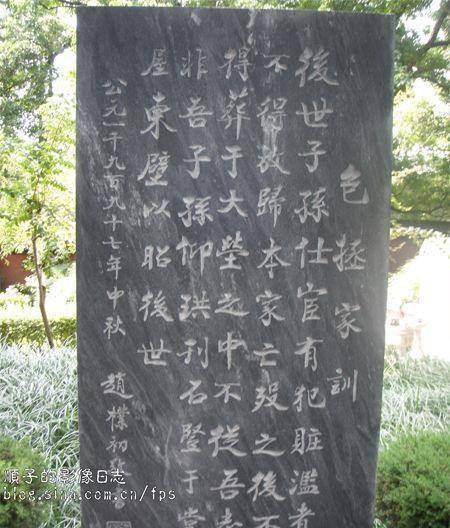 包拯家訓
後世子孫仕宦有犯贓濫者
不得放歸本家亡歿之後不
得葬于大塋之中不從吾志
非吾子孫仰珙刊石豎于堂
屋東壁以昭後世
公元一千九百九十七年中秋 趙樸初
順子的影像日志
blog.sina.com.cn/fps